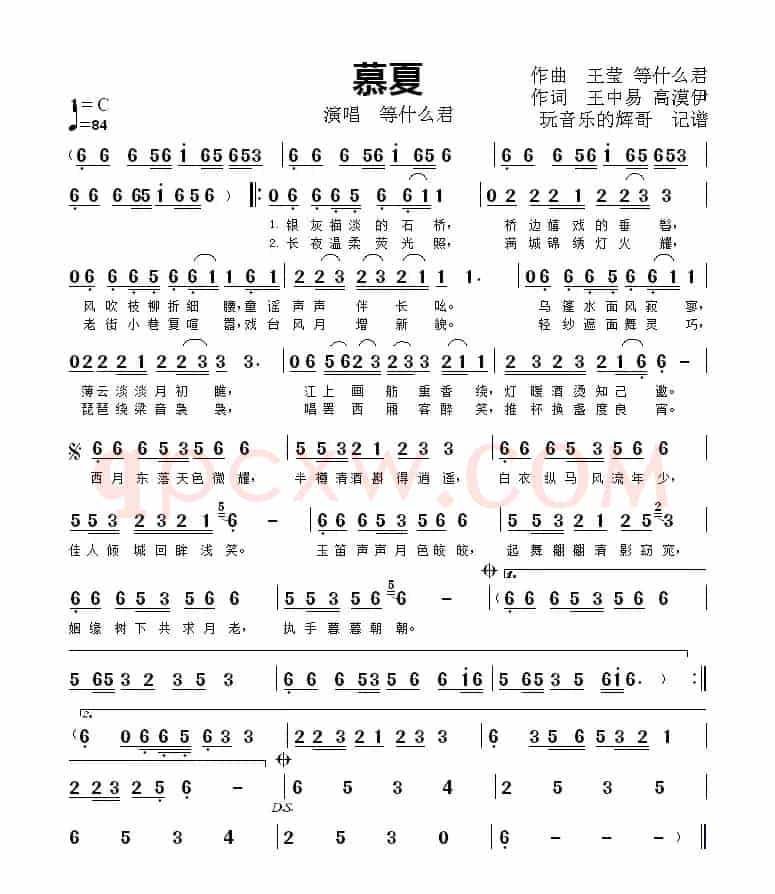 慕夏
作曲 王莹 等什么君
1=C
演唱 等什么君
作词 王中易 高漠伊
♩=84
玩音乐的辉哥 记谱
( 6 6 6 56 i 65 653 | 6 6 6 56 i 65 65 | 6 6 6 56 i 65 653 |
6 6 6 65 i 65 6 ) ‖: 06 6 6 5 6 6 1 1 | 02 2 2 1 2 2 3 3 |
1.银灰描淡的石桥， 桥边嬉戏的垂髫，
2.长夜温柔荧光照， 满城锦绣灯火耀，
06 6 6 5 6 6 1 1 6 1 | 2 2 3 2 2 1 1 2 1 1. | 06 6 6 5 6 6 1 1 |
风吹枝柳折细腰，童谣声声伴长吆。 乌篷水面风寂寥，
老街小巷夏喧嚣，戏台风月增新貌。 轻纱遮面舞灵巧，
02 2 2 1 2 2 3 3 3. | 06 5623 233 6 11 | 2 3 2 3 2 1 6 6 – |
薄云淡淡月初瞧， 江上画舫熏香绕，灯暖酒烫知己邀。
琵琶绕梁音袅袅， 唱罢西厢客醉笑，推杯换盏度良宵。
6 6 6 5 3 5 6 6 | 5 5 3 2 2 1 2 3 3 | 6 6 6 5 3 5 6 6 |
西月东落天色微耀， 半樽清酒斟得逍遥， 白衣纵马风流年少，
5 5 3 2 3 2 1 5 6 – | 6 6 6 5 3 5 6 6 | 5 5 3 2 2 1 2 5 3 3 |
佳人倾城回眸浅笑。 玉笛声声月色皎皎， 起舞翩翩清影窈窕，
1.
6 6 6 5 3 5 6 6 | 5 5 3 5 5 6 – | ( 6 6 6 5 3 5 6 6 |
姻缘树下共求月老， 执手暮暮朝朝。
5 65 3 2 3 5 3 | 6 6 6 53 5 6 i 6 | 5 65 3 5 6 i 6. ) :‖
2.
( 6 0 6 6 5 6 3 3 | 2 2 3 2 1 2 3 3 | 6 3 5 6 5 3 2 1 |
2 2 3 2 5 6 – | 6 5 3 4 | 2 5 3 5 |
D.S.
6 5 3 4 | 2 5 3 0 | 6 – – – ) ‖
qpcxw.COM